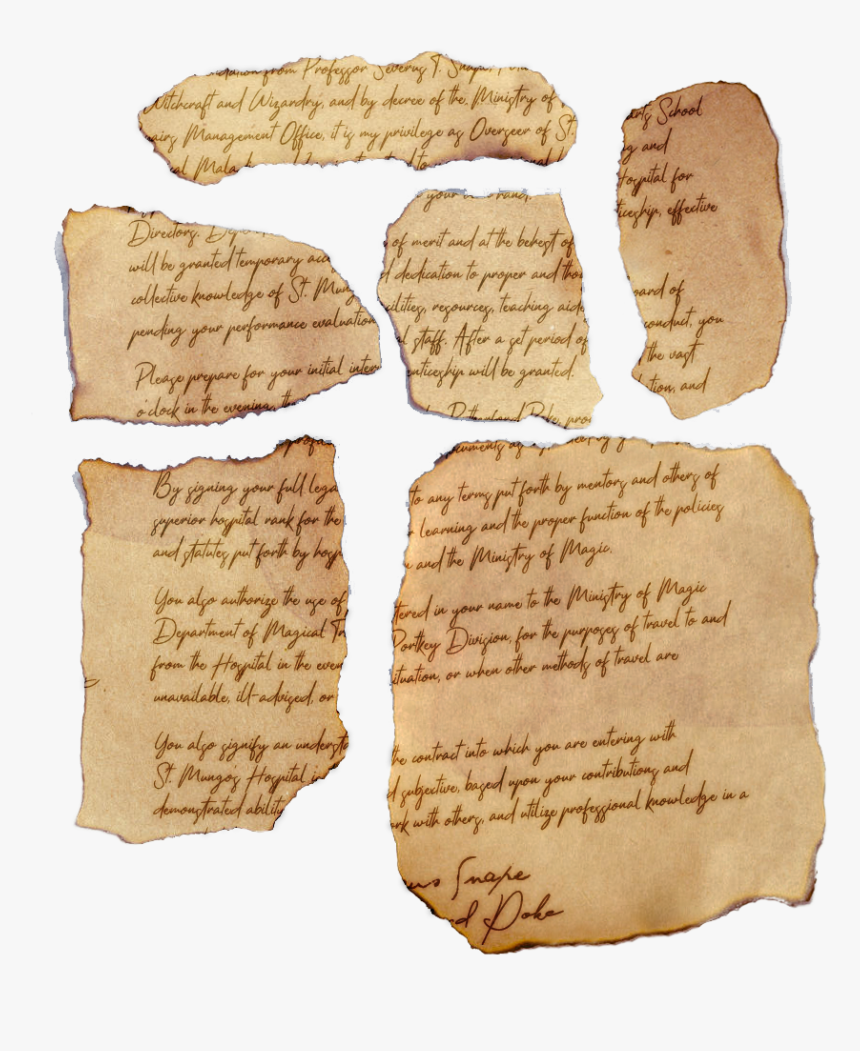 from Professor Severus T. Snape,
Witchcraft and Wizardry, and by decree of the Ministry of
airs Management Office, it is my privilege as Overseer of St.
arts School
g and
Hospital for
ticeship, effective
oard of
conduct, you
the vast
tion, and
Directors.
will be granted temporary acc
collective knowledge of St. Mung
pending your performance evaluation
Please prepare for your initial inter
o'clock in the evening, th
your
of merit and at the behest of
d dedication to proper and thor
cilities, resources, teaching aids
al staff. After a set period of
enticeship will be granted.
profes
By signing your full lega
superior hospital rank for the
and statutes put forth by hosp
You also authorize the use of
Department of Magical Tr
from the Hospital in the even
unavailable, ill-advised, or
You also signify an understa
St. Mungo's Hospital in
demonstrated ability
to any terms put forth by mentors and others of
r learning and the proper function of the policies
and the Ministry of Magic.
tered in your name to the Ministry of Magic
Portkey Division, for the purposes of travel to and
ituation, or when other methods of travel are
the contract into which you are entering with
d subjective, based upon your contributions and
ork with others, and utilize professional knowledge in a
us Snape
d Poke